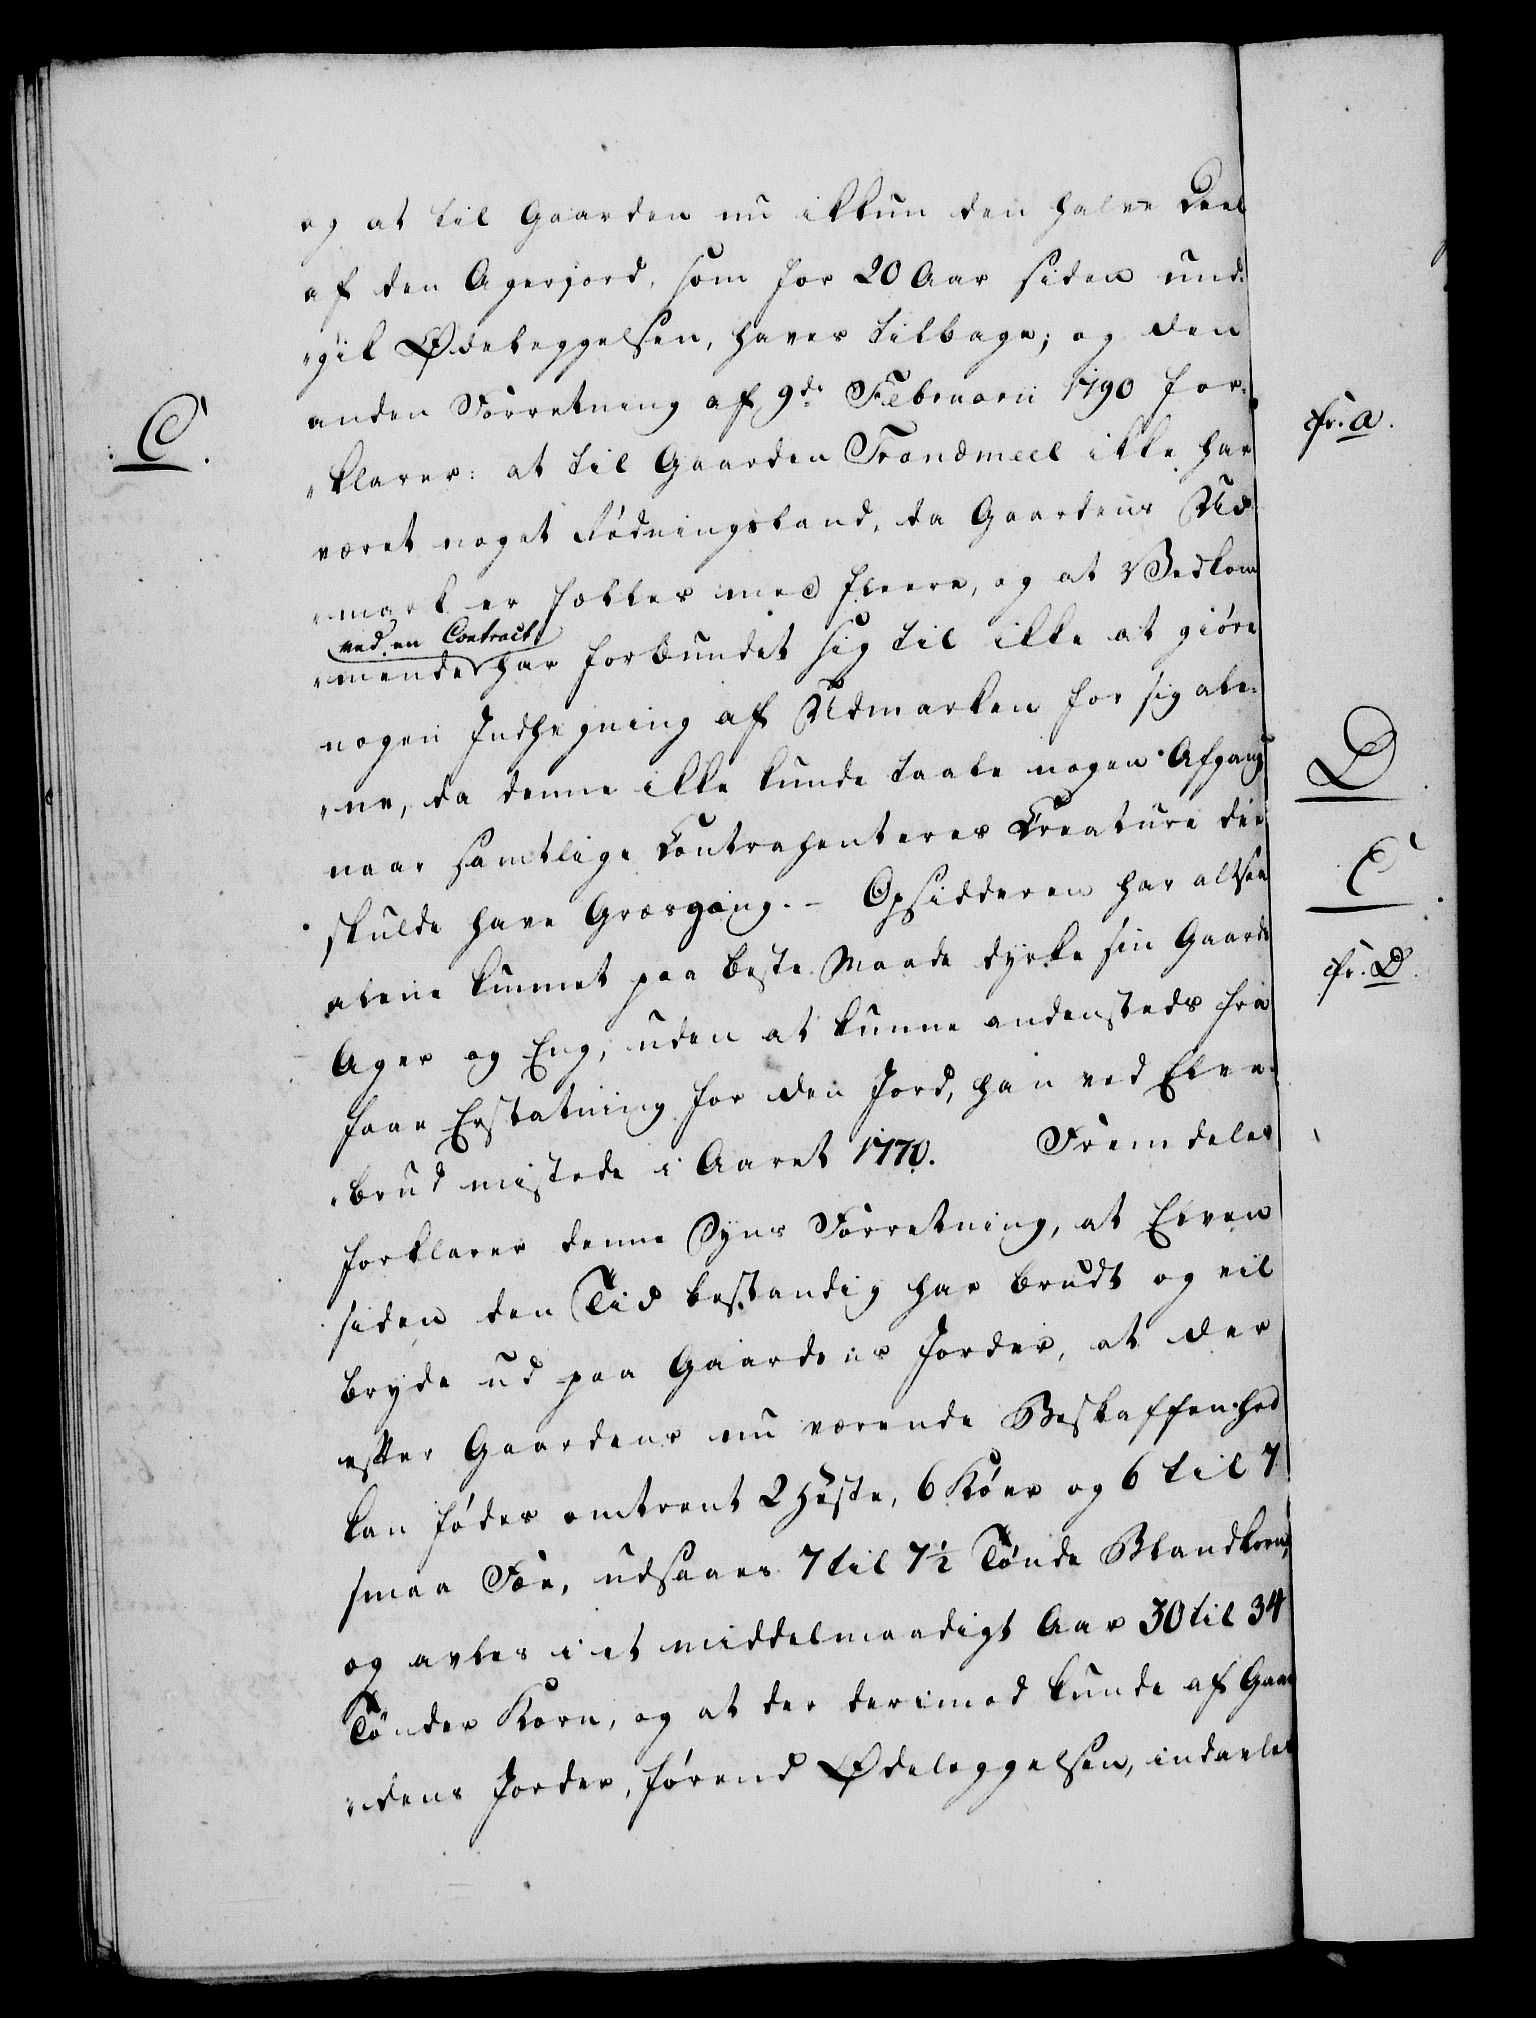 og at til Gaarden nu ikkun den halve Deel
af den Agerjord, som for 20 Aar siden und-
"gik Ødeleggelsen, haves tilbage; og den
anden Forretning af 9de Februarii 1790 for-
"klarer: at til Gaarden Trandmeel ikke har
været noget Rødningsland, da Gaardens Ud-
"mark er fælles med fleere, og at Vedkom-
ved en Contract
"mende har forbundet sig til ikke at giöre
nogen Indhegning af Udmarken for sig ale-
"ne, da denne ikke kunde taale nogen Afgang
naar samtlige Contrahenteres Creature der
skulde have Græsgang. - Opsidderen har altsaa
alene kunnet paa beste Maade dyrke sin Gaards
Ager og Eng, uden at kunne andensteds fra
faae Erstatning for den Jord, han ved Elve-
"brud mistede i Aaret 1770. Fremdeles
forklarer denne Syns Forretning, at Elven
siden den Tid bestandig har brudt og vil
bryde ud paa Gaardens Jorder, at der
efter Gaardens nu værende Beskaffenhed
kan födes omtrent 2 Heste, 6 Köer og 6 til 7
smaa Fæe, udsaaes 7 til 7½ Tönde Blandkorn,
og avles i et middelmaadigt Aar 30 til 34
Tönder Korn, og at der derimod kunde af Gaar-
"dens Jorder, förend Ødeleggelsen, indavles
C.
cfr. a.
D.
C.
cfr. D.